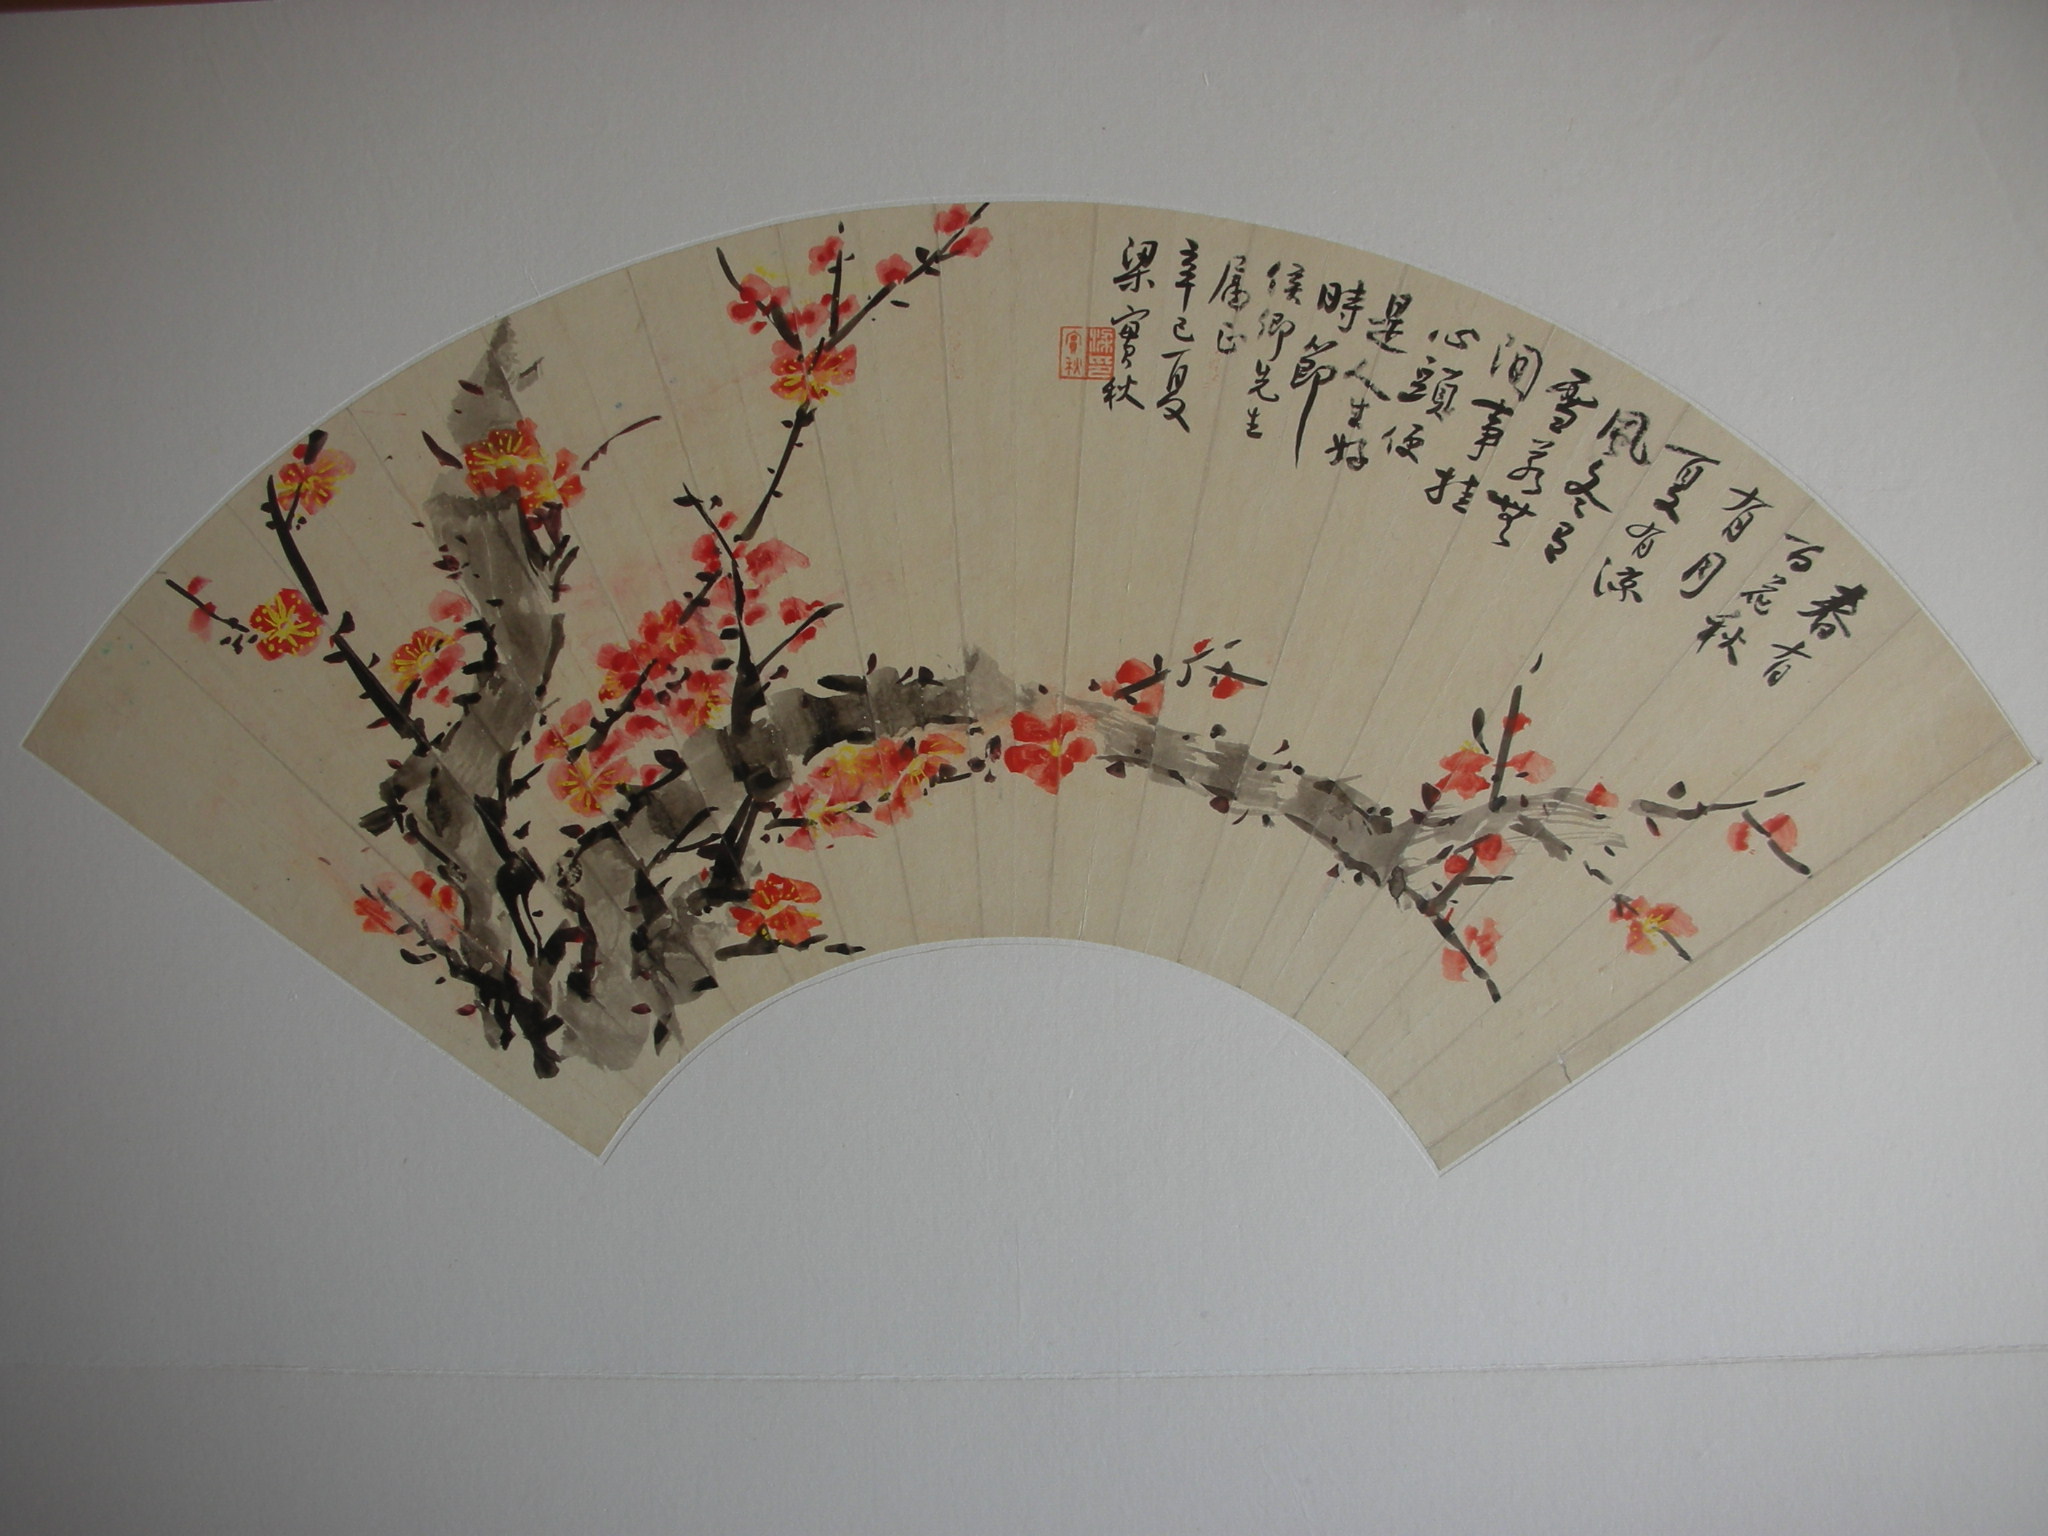 春有
百花
有月秋
夏有涼
風冬有
雪若無
閒事掛
心頭便
是人生好
時節
侯卿先生
屬正
辛巳夏
梁實秋
梁實秋印